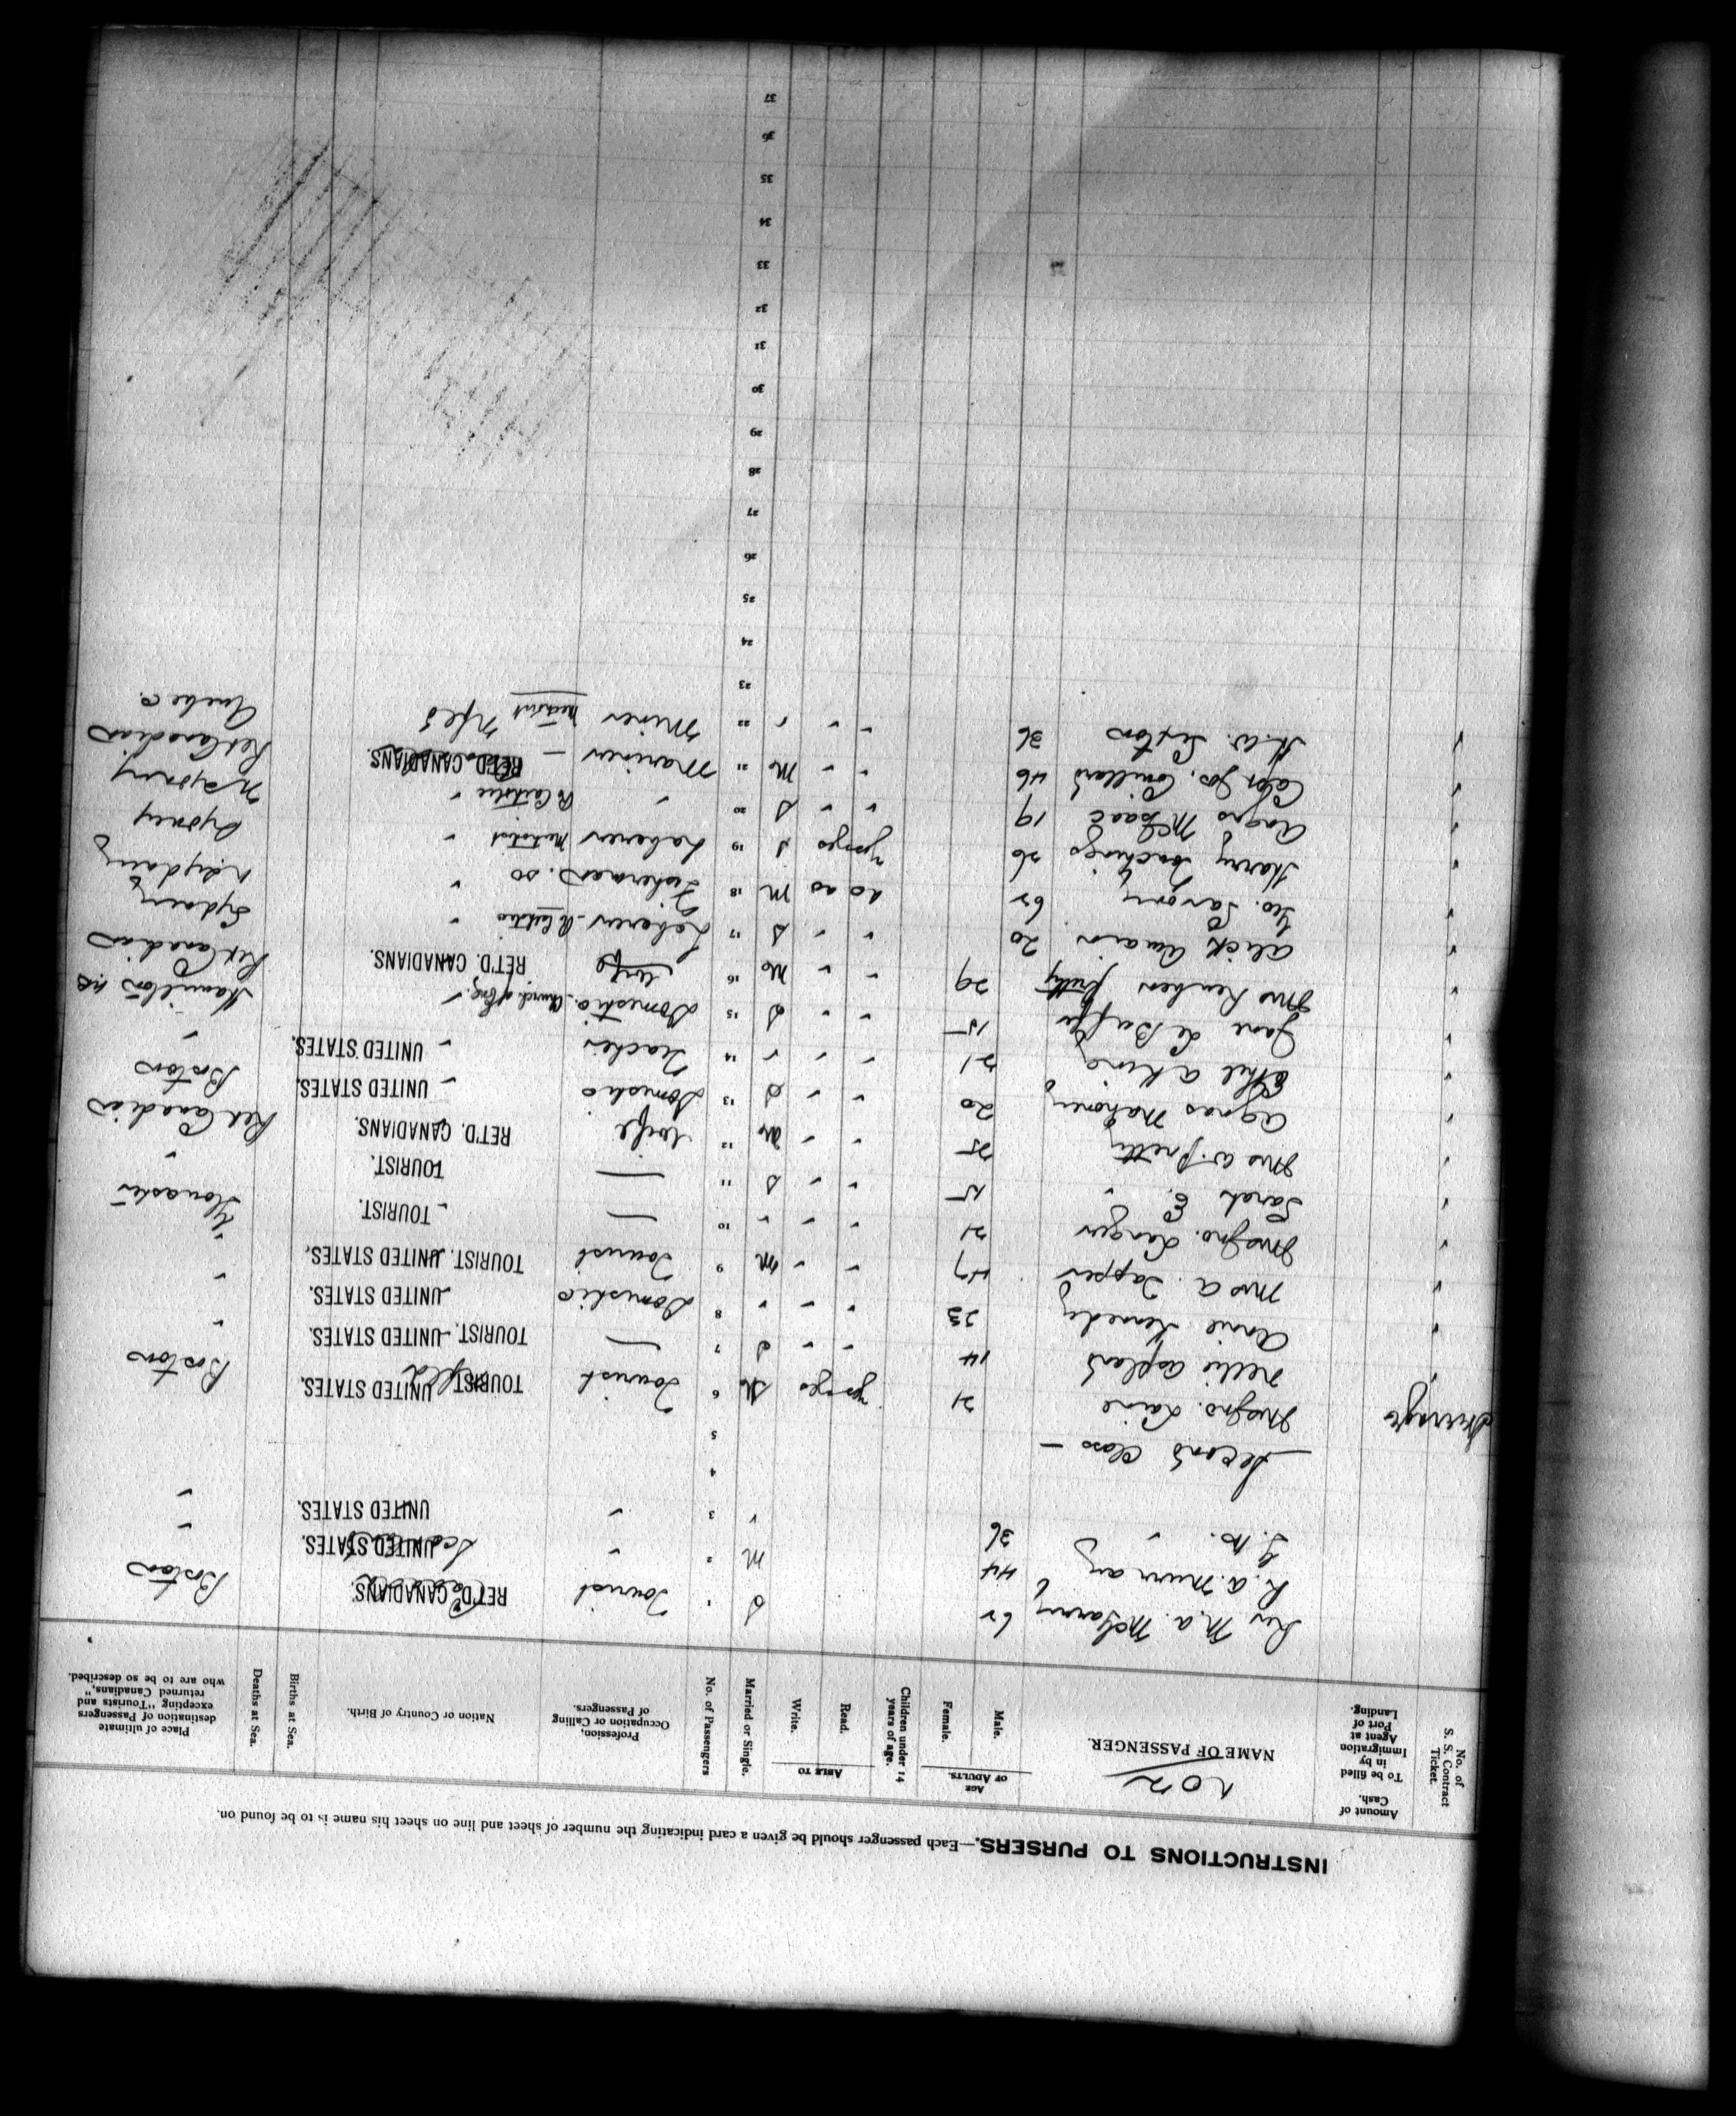 INSTRUCTIONS TO PURSERS.—Each passenger should be given a card indicating the number of sheet and line on sheet his name is to be found on.
No. of S. S. Contract Ticket.
Amount of Cash. To be filled in by Immigration Agent at Port of Landing.
NAME OF PASSENGER.
AGE OF ADULTS.
Male.
Female.
Children under 14 years of age.
ABLE TO
Read.
Write.
Married or Single.
No. of Passengers
Profession, Occupation or Calling of Passengers.
Nation or Country of Birth.
Births at Sea.
Deaths at Sea.
Place of ultimate destination of Passengers excepting "Tourists and returned Canadians," who are to be so described.
Rev M.A. 62 S 1 Tourist RET'D. CANADIANS. Boston
R. A. Murray 44 M 2 " UNITED STATES. "
36 " 3 " UNITED STATES. "
4
— Second Class — 5
Mrs Jno. Laine 21 yes yes M 6 Tourist TOURIST. UNITED STATES. Boston
Nellie 14 " " S 7 — TOURIST. UNITED STATES. "
Annie Kennedy 23 " " " 8 Domestic UNITED STATES. "
Mrs A. Tapper 47 " " M 9 Tourist TOURIST. UNITED STATES. "
Mrs Jno. 21 " " " 10 — " TOURIST.
Sarah E. " 15 " " S 11 — TOURIST. "
Mrs W. Pretty 25 " " M 12 Wife RET'D. CANADIANS. Ret Canadian
Agnes Mahoney 20 " " S 13 Domestic " UNITED STATES. Boston
Ethel A King 21 " " " 14 Teacher " UNITED STATES. "
Jane Le Buffe 15 " " S 15 Domestic Church of Eng. " Hamilton
Mrs Reuben Pretty 29 " " M 16 Wife RET'D. CANADIANS. Ret Canadian
Alick 20 " " S 17 Laborer " Sydney
Geo. 62 no no M 18 Fisherman do " N Sydney
Harry 26 yes yes S 19 Laborer Methodist " Sydney
Angus McIsaac 19 " " S 20 " R Catholic " N Sydney
Capt Jos. 46 " " M 21 Mariner — RET'D. CANADIANS. Ret Canadian
H. W. Sexton 36 " " " 22 Miner Methodist Nfld Quebec
23
24
25
26
27
28
29
30
31
32
33
34
35
36
37